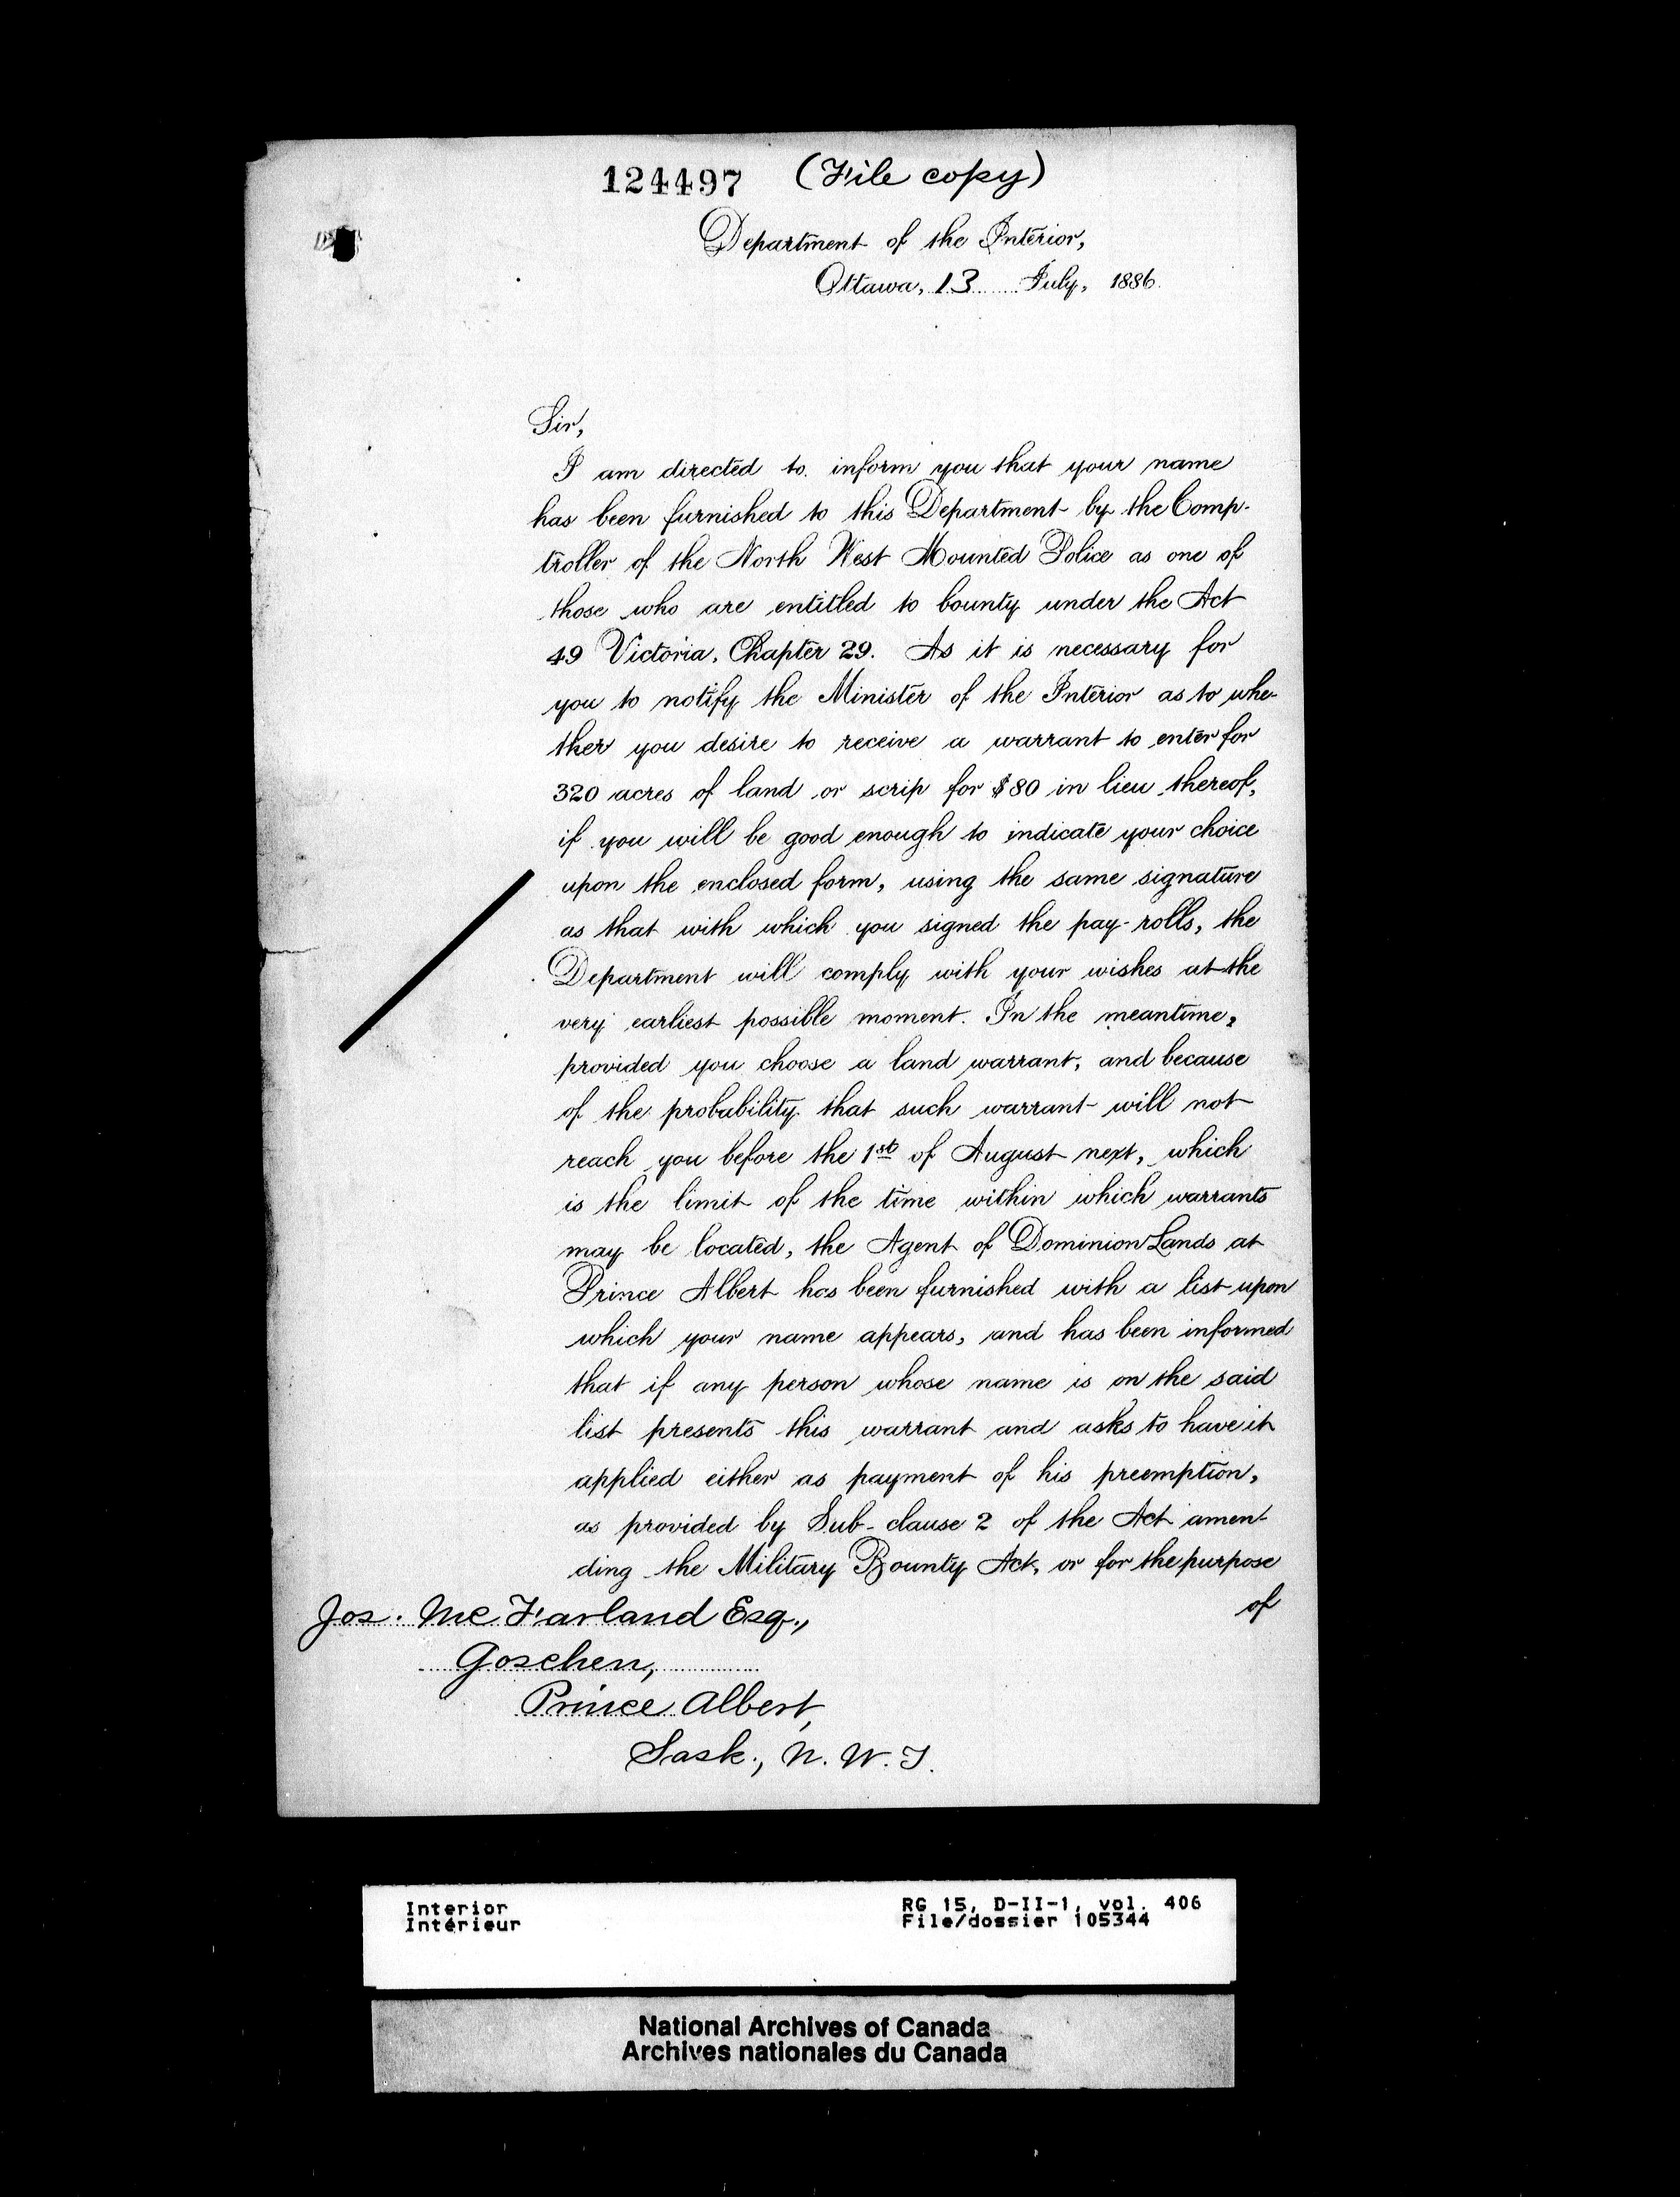 124497 (File copy)
Department of the Interior,
Ottawa, 13 July, 1886.
Sir,
I am directed to inform you that your name
has been furnished to this Department by the Comp-
troller of the North West Mounted Police as one of
those who are entitled to bounty under the Act
49 Victoria, Chapter 29. As it is necessary for
you to notify the Minister of the Interior as to whe-
ther you desire to receive a warrant to enter for
320 acres of land or scrip for $80 in lieu thereof,
if you will be good enough to indicate your choice
upon the enclosed form, using the same signature
as that with which you signed the pay-rolls, the
Department will comply with your wishes at the
very earliest possible moment. In the meantime,
provided you choose a land warrant, and because
of the probability that such warrant will not
reach you before the 1st of August next, which
is the limit of the time within which warrants
may be located, the Agent of Dominion Lands at
Prince Albert has been furnished with a list upon
which your name appears, and has been informed
that if any person whose name is on the said
list presents this warrant and asks to have it
applied either as payment of his preemption,
as provided by Sub-clause 2 of the Act amen-
ding the Military Bounty Act, or for the purpose
of
Jos. McFarland Esq.,
Goschen,
Prince Albert,
Sask., N.W.T.
Interior
Intérieur
RG 15, D-II-1, vol. 406
File/dossier 105344
National Archives of Canada
Archives nationales du Canada